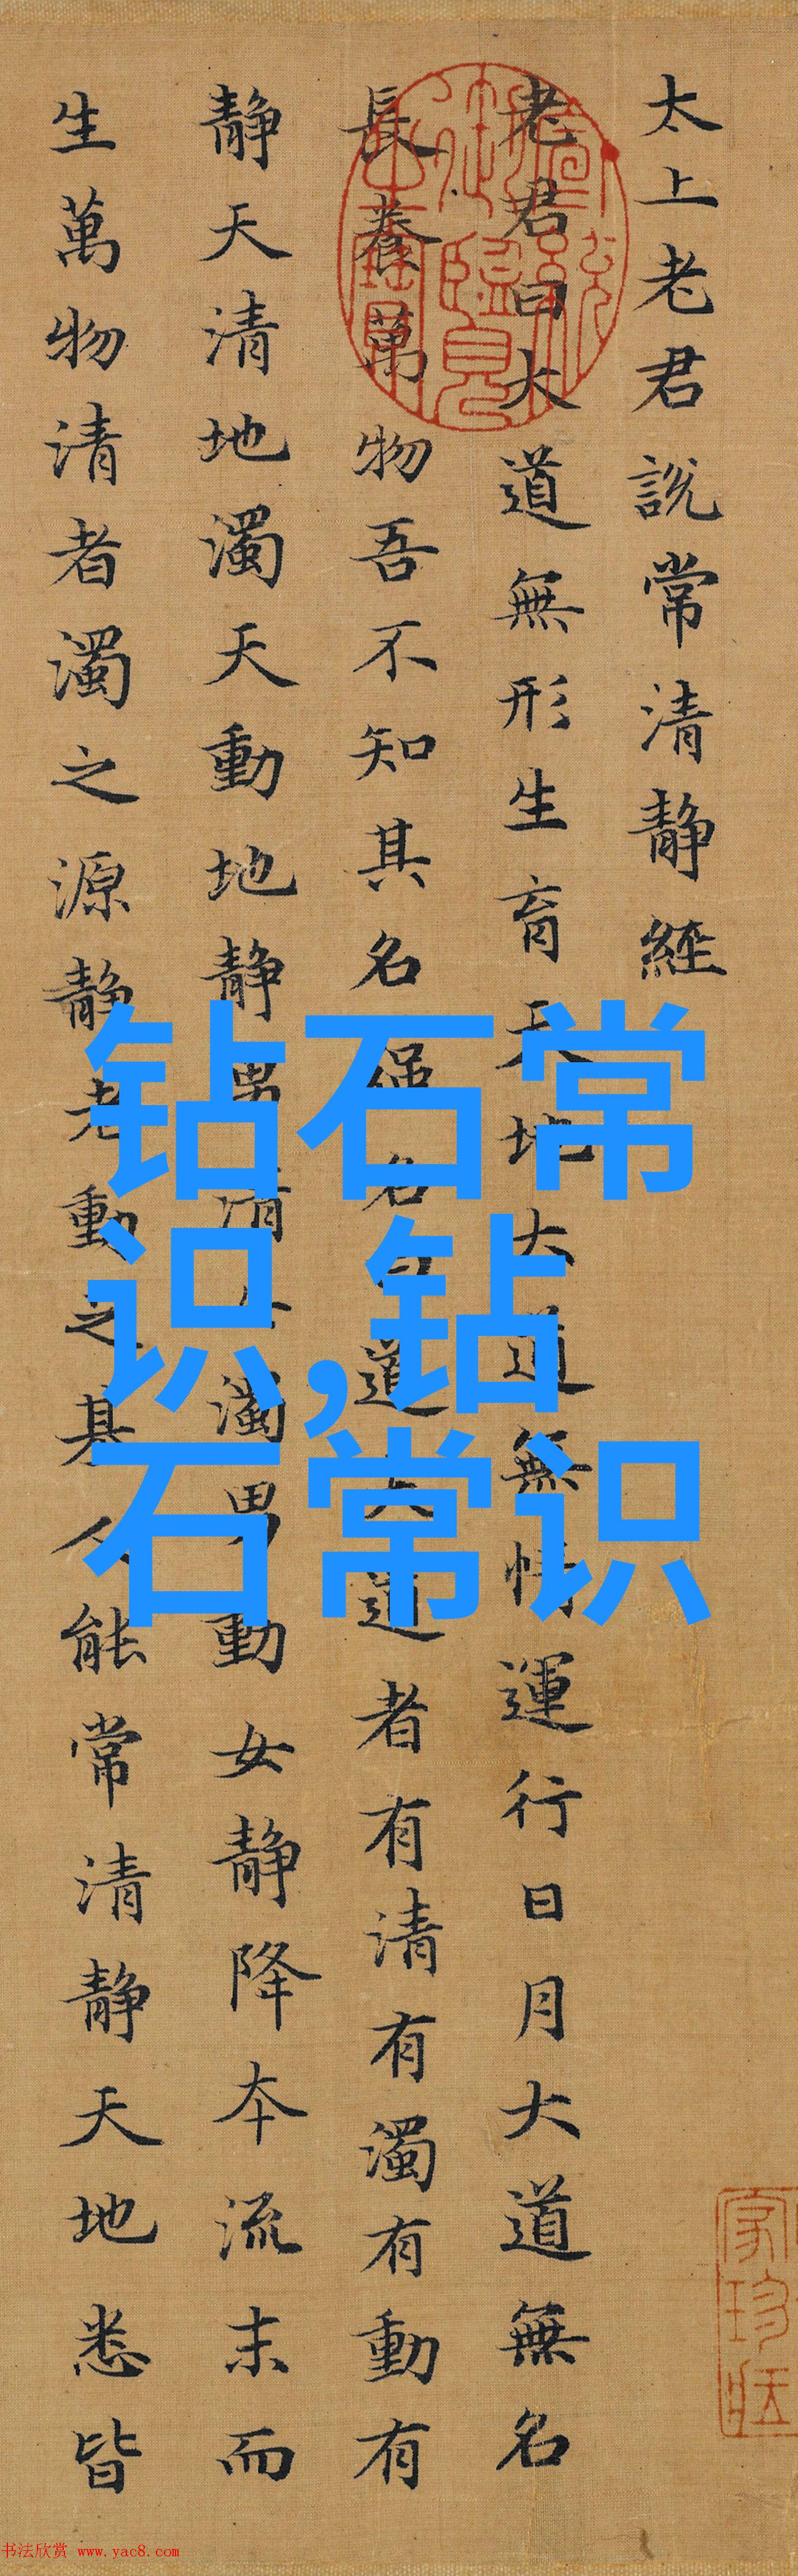 太上老君說常清靜經
老君曰大道無形生育天地大道無情運行日月大道無名
長養萬物吾不知其名強名曰道夫道者有清有濁有動有
靜天清地濁天動地靜男清女濁男動女靜降本流末而
生萬物清者濁之源靜者動之基人能常清靜天地悉皆
钻石常
识,钻
石常识
家珍
书法欣赏 www.yac8.com